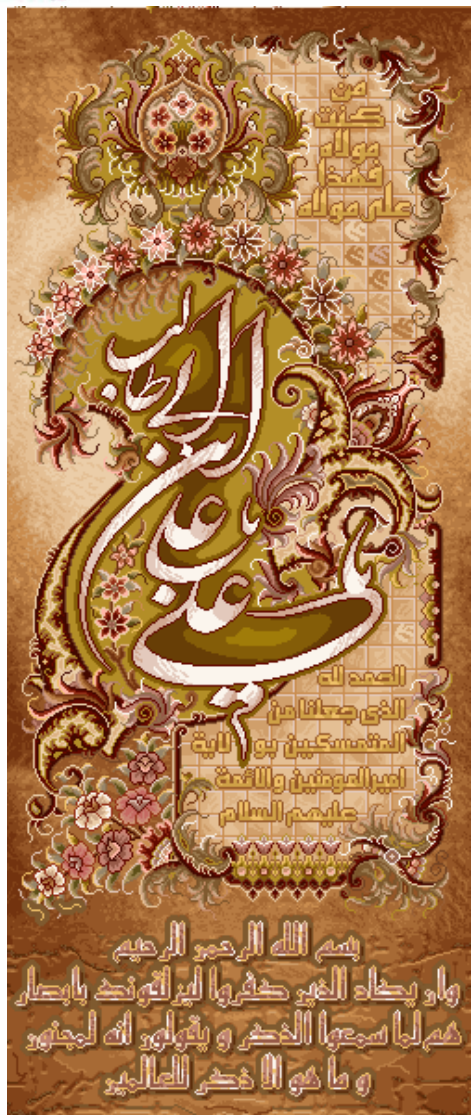 من
كنت
مولاه
فهذا
علی مولاه
یا علی بن ابی طالب
الحمد لله
الذی جعلنا من
المتمسکین بو لایة
امیرالمومنین والائمة
علیهم السلام
بسم الله الرحمن الرحیم
وان یکاد الذین کفروا لیزلقونک بابصار
هم لما سمعوا الذکر و یقولون انه لمجنون
و ما هو الا ذکر للعالمین